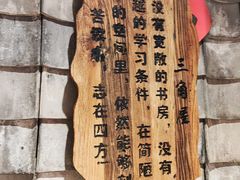 三角屋
没有宽敞的书房，没有
的学习条件，在简陋
的空间里，依然能够刻
苦耕读，志在四方